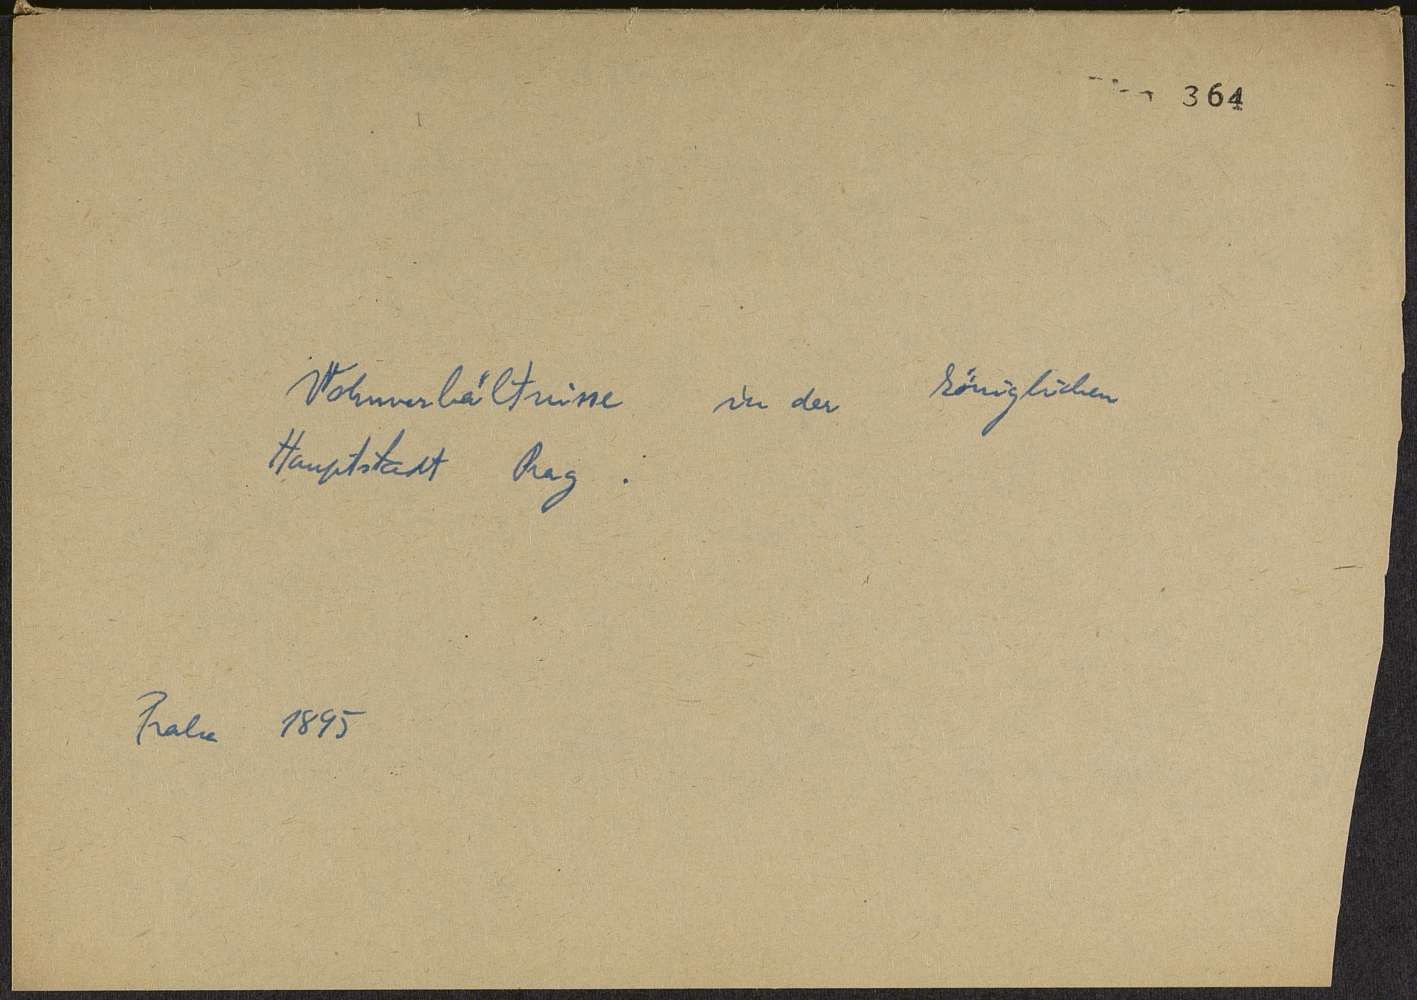 364
Wohnverhältnisse in der königlichen
Hauptstadt Prag.
Praha 1895